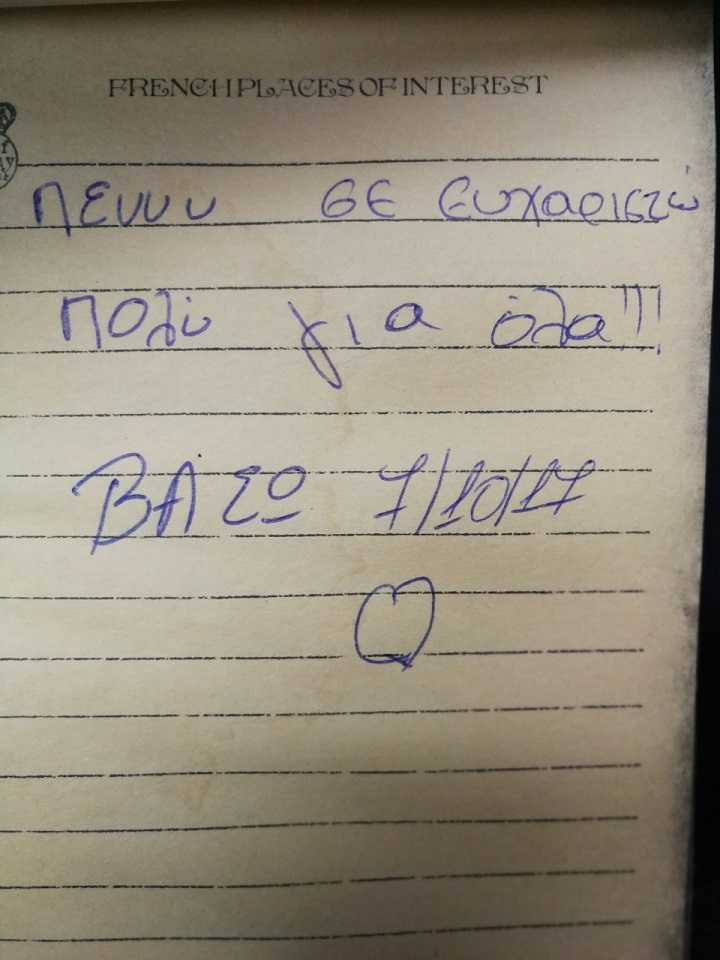 FRENCH PLACES OF INTEREST
Πεννυ σε ευχαριστώ
πολύ για όλα!!!
ΒΑΣΩ 7/10/17